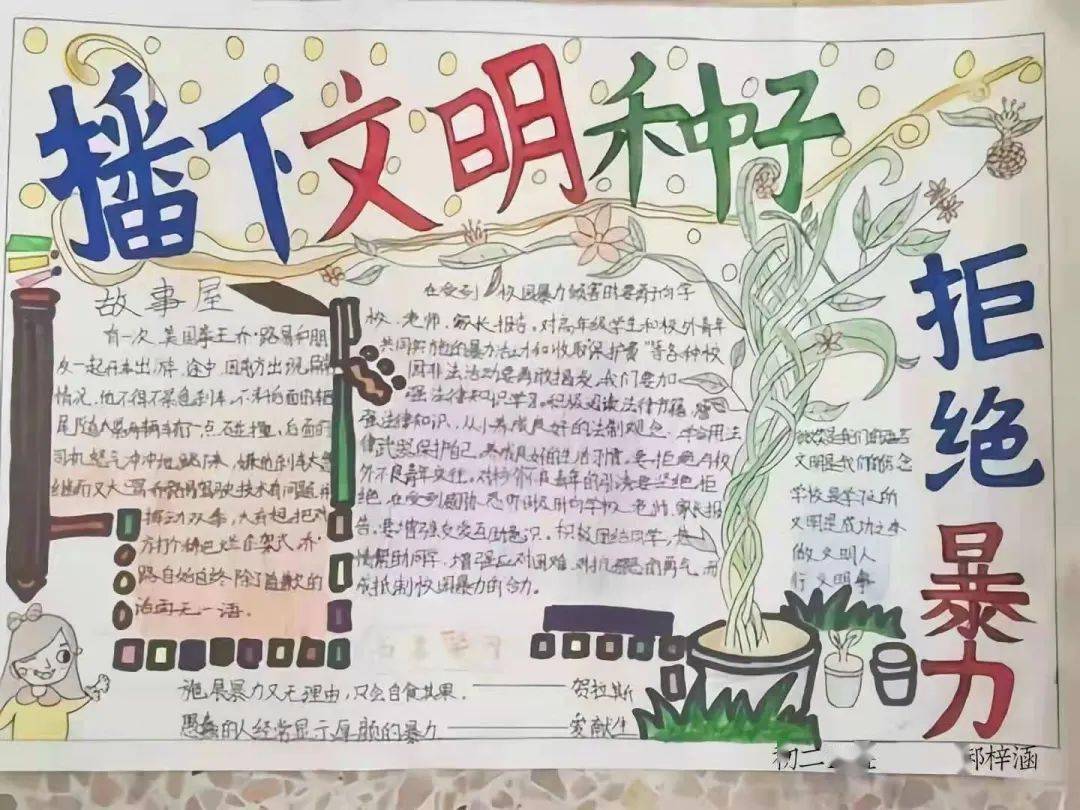 播下文明种子
拒绝
暴力
故事屋
有一次,美国拳王乔·路易和朋
友一起开车出游,途中,因前方出现
情况,他不得不紧急刹车,不料后面的
两辆车有了一点碰撞,后面的
司机怒气冲冲地跳下来,嫌他刹车太急
继而又大骂乔路易驾驶技术有问题,
挥动双拳,大有想把对
方打个稀巴烂的架式,乔·
路易自始自终除了道歉的
话再无一语.
在受到校园暴力侵害时要勇于向学
校、老师、家长报告。对高年级学生和校外青年
共同实施的暴力活动和收取“保护费”等各种校
园非法活动要勇敢揭发。我们要加
强法律知识学习。积极阅读法律方面
法律知识,从小养成良好的法制观念,学会用法
律武器保护自己。养成良好的生活习惯,要拒绝与校
外不良青年交往。对校外不良青年的引诱要坚绝拒
绝,在受到威胁、恐吓时及时向学校、老师、家长报
告。要增强友爱互助意识。积极团结同学,热
情帮助同学,增强应对困难、对抗邪恶的勇气,形
成抵制校园暴力的合力。
文明是我们的信念
学校是学位所
文明是成功之本
做文明人
行文明事
施展暴力又无理由,只会自食其果. ————贺拉斯
愚蠢的人经常显示厚颜的暴力 ————爱献生
初二 梓涵